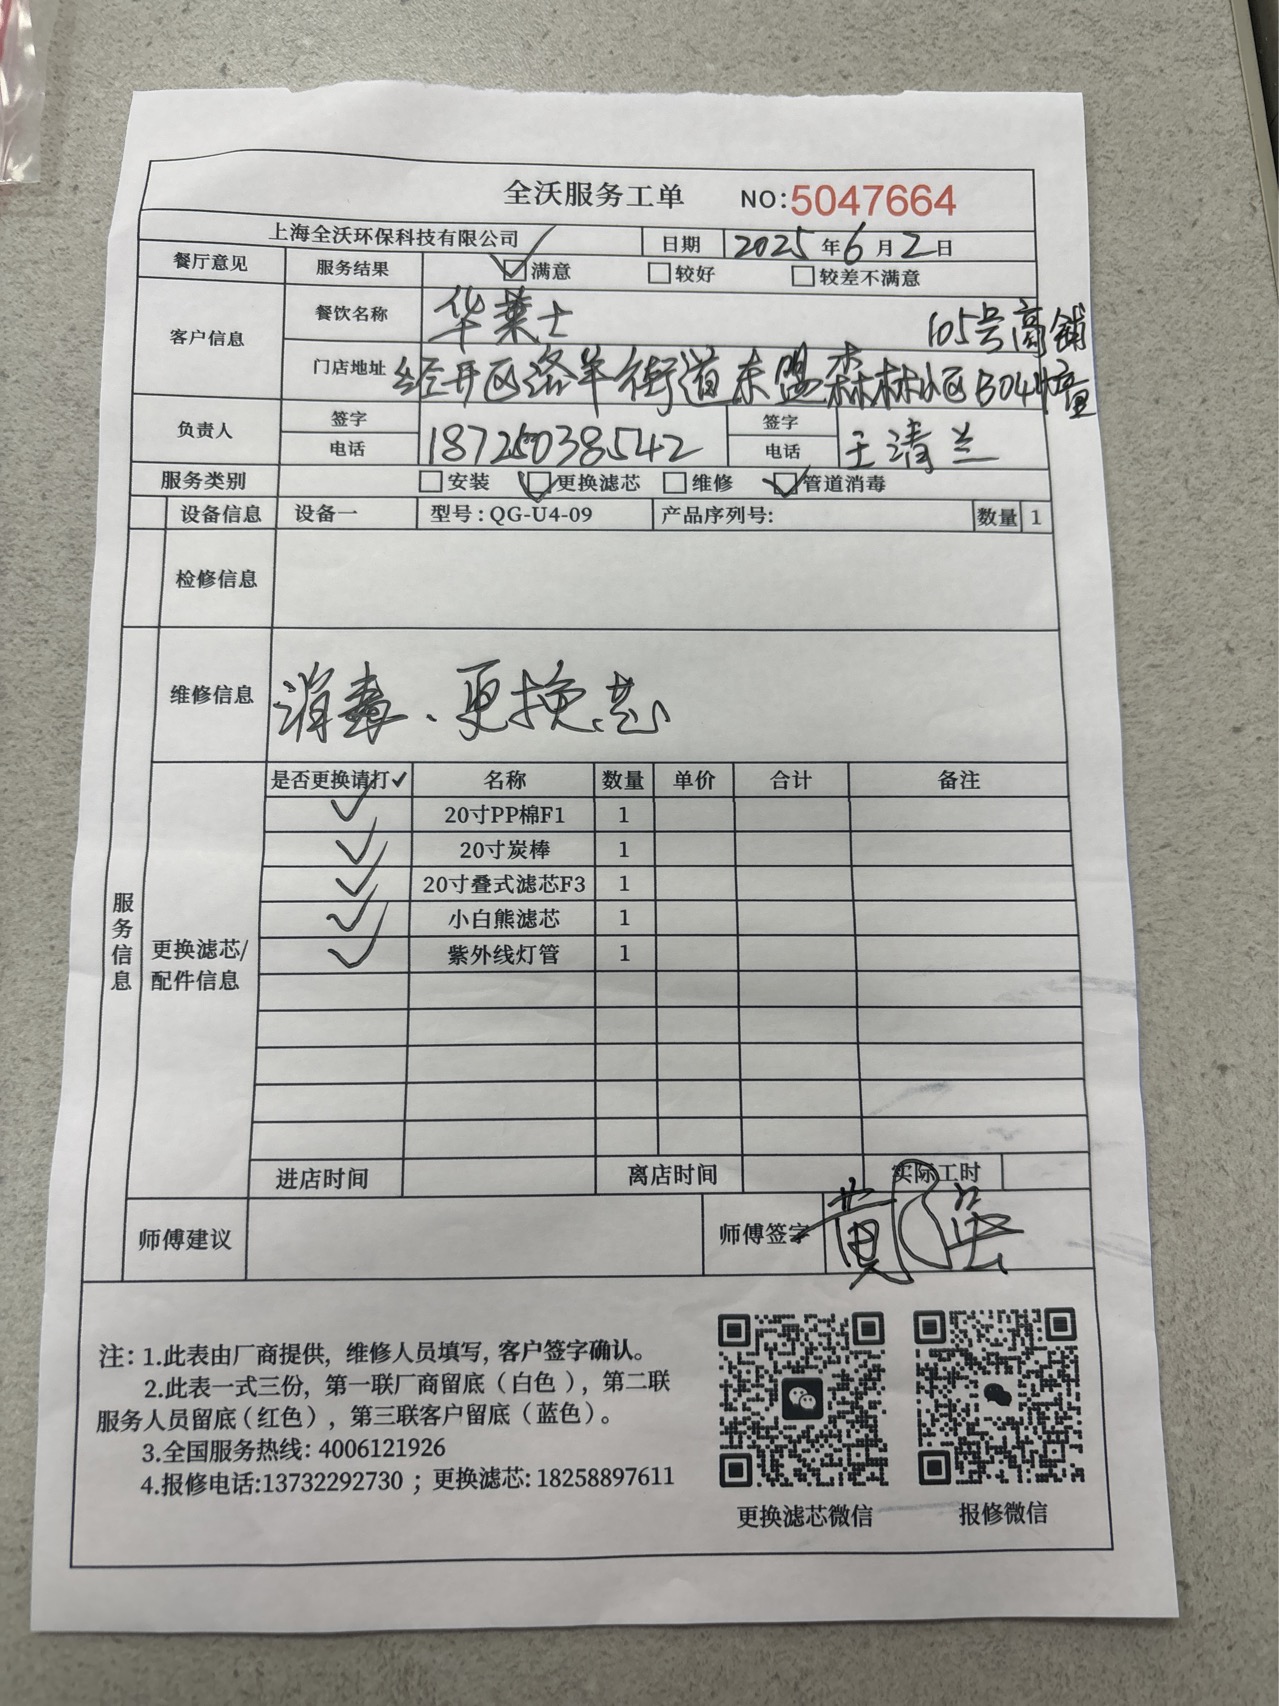 全沃服务工单 NO:5047664
上海全沃环保科技有限公司 日期 2025年6月2日
餐厅意见 服务结果 满意 较好 较差不满意
客户信息 餐饮名称 华莱士
105号商铺
门店地址 经开区洛羊街道东盟森林小区B04幢
负责人 签字 签字
电话 18725038542 电话 王清兰
服务类别 安装 更换滤芯 维修 管道消毒
设备信息 设备一 型号:QG-U4-09 产品序列号: 数量 1
检修信息
维修信息 消毒、更换芯
服务信息
是否更换请打✓ 名称 数量 单价 合计 备注
✓ 20寸PP棉F1 1
✓ 20寸炭棒 1
✓ 20寸叠式滤芯F3 1
✓ 小白熊滤芯 1
✓ 紫外线灯管 1
更换滤芯/
配件信息
进店时间 离店时间 实际工时
师傅建议 师傅签字
注: 1.此表由厂商提供, 维修人员填写, 客户签字确认。
2.此表一式三份, 第一联厂商留底(白色), 第二联
服务人员留底(红色), 第三联客户留底(蓝色)。
3.全国服务热线: 4006121926
4.报修电话:13732292730 ; 更换滤芯: 18258897611
更换滤芯微信 报修微信